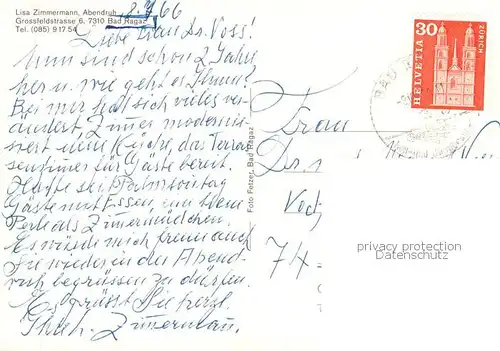 Lisa Zimmermann, Abendruh
Grossfeldstrasse 6, 7310 Bad Ragaz
Tel. (085) 9 17 54
66
Liebe Frau Dr. Voss!
Nun sind schon 2 Jahre
her u. wie geht es Ihnen?
Bei mir hat sich vieles ver-
ändert, Zimmer modernis-
iert neue Küche, das Terras-
senzimmer für Gäste bereit.
Hatte seit Palmsonntag
Gäste mit Essen, eine
Perle als Zimmermädchen.
Es würde mich freuen auch
Sie wieder in der Abend-
ruh begrüssen zu dürfen.
Es grüsst Sie herzl.
Ihre L. Zimmermann.
Foto Fetzer, Bad Ragaz
30
HELVETIA
ZÜRICH
BAD
Frau
Dr.
74
privacy protection
© ansichtskartenversand.com